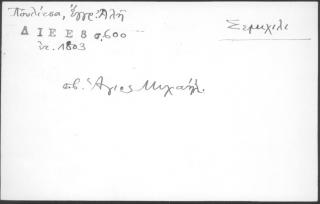 Πουλίτσα, Ἔγγρ. Ἀλῆ
Δ Ι Ε Ε 8 σ. 600
ἔτ. 1803
Σεμιχίλι
σβ. Ἅγιος Μιχαήλ.